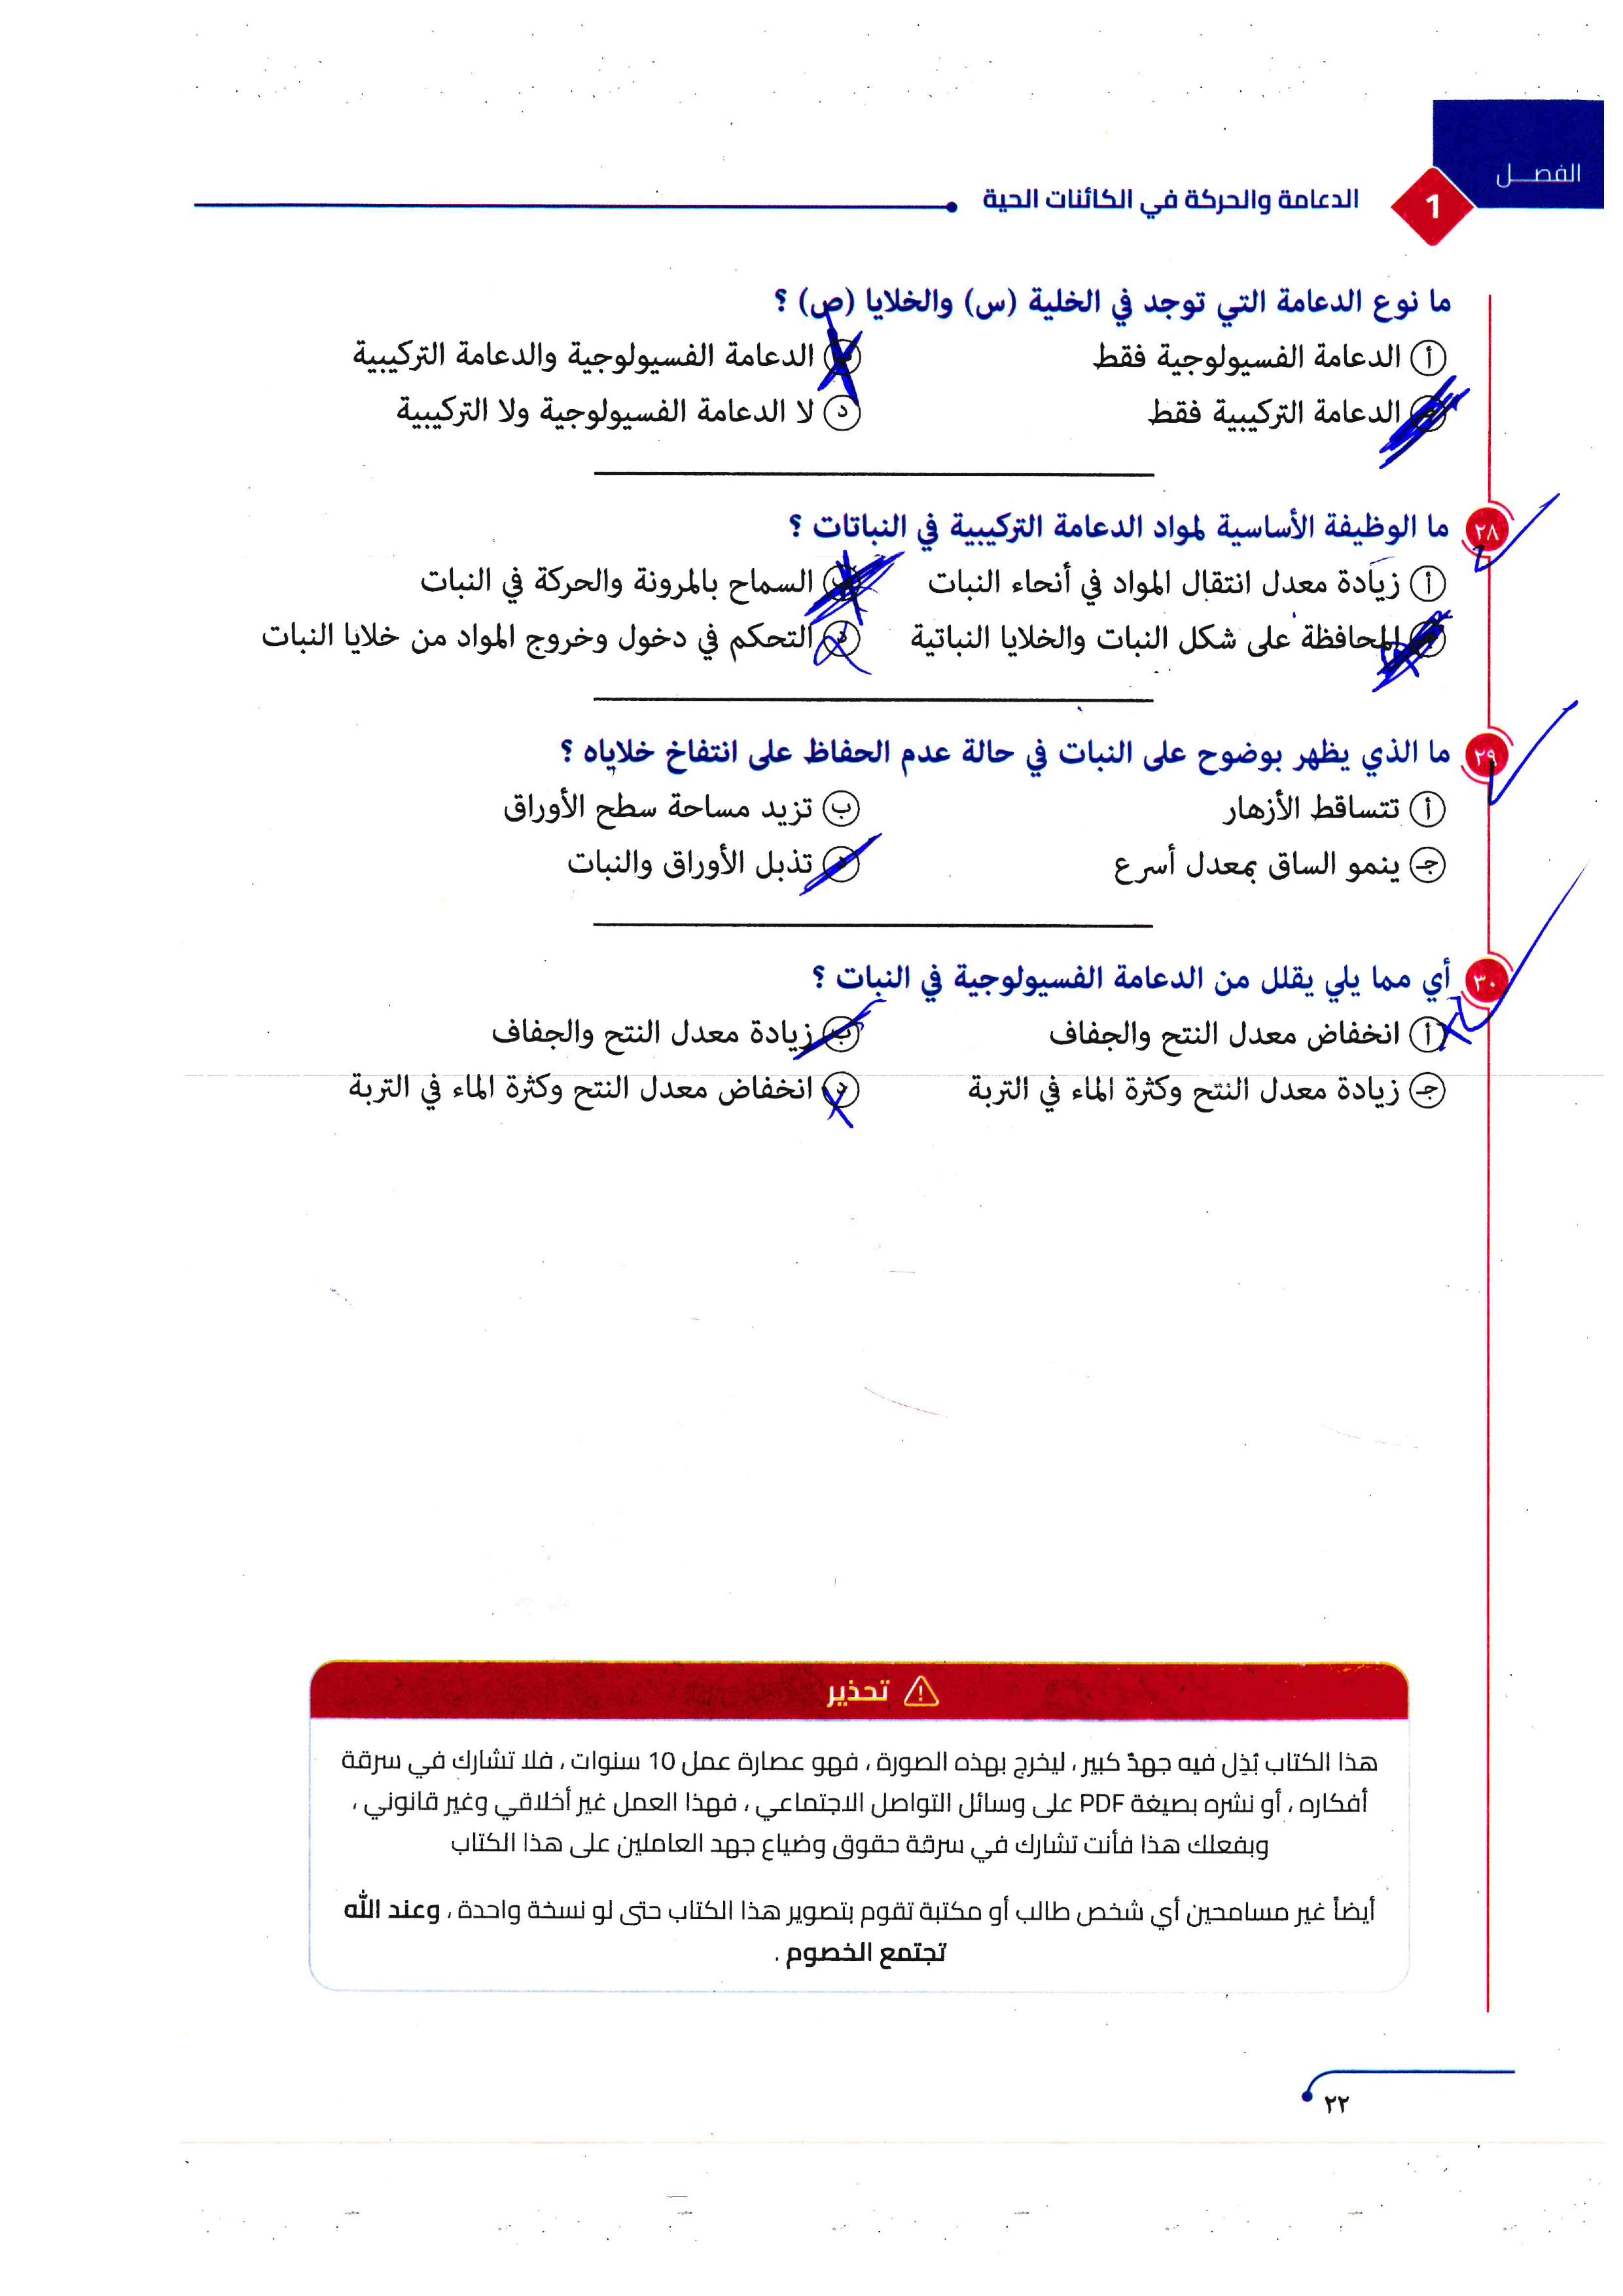 الفصل
1
الدعامة والحركة في الكائنات الحية
ما نوع الدعامة التي توجد في الخلية (س) والخلايا (ص) ؟
أ الدعامة الفسيولوجية فقط
ب الدعامة الفسيولوجية والدعامة التركيبية
جـ الدعامة التركيبية فقط
د لا الدعامة الفسيولوجية ولا التركيبية
٢٨ ما الوظيفة الأساسية لمواد الدعامة التركيبية في النباتات ؟
أ زيادة معدل انتقال المواد في أنحاء النبات
ب السماح بالمرونة والحركة في النبات
جـ المحافظة على شكل النبات والخلايا النباتية
د التحكم في دخول وخروج المواد من خلايا النبات
٢٩ ما الذي يظهر بوضوح على النبات في حالة عدم الحفاظ على انتفاخ خلاياه ؟
أ تتساقط الأزهار
ب تزيد مساحة سطح الأوراق
جـ ينمو الساق بمعدل أسرع
د تذبل الأوراق والنبات
٣٠ أي مما يلي يقلل من الدعامة الفسيولوجية في النبات ؟
أ انخفاض معدل النتح والجفاف
ب زيادة معدل النتح والجفاف
جـ زيادة معدل النتح وكثرة الماء في التربة
د انخفاض معدل النتح وكثرة الماء في التربة
تحذير
هذا الكتاب بُذِل فيه جهدٌ كبير ، ليخرج بهذه الصورة ، فهو عصارة عمل 10 سنوات ، فلا تشارك في سرقة
أفكاره ، أو نشره بصيغة PDF على وسائل التواصل الاجتماعي ، فهذا العمل غير أخلاقي وغير قانوني ،
وبفعلك هذا فأنت تشارك في سرقة حقوق وضياع جهد العاملين على هذا الكتاب
أيضاً غير مسامحين أي شخص طالب أو مكتبة تقوم بتصوير هذا الكتاب حتى لو نسخة واحدة ، وعند الله
تجتمع الخصوم .
٢٢